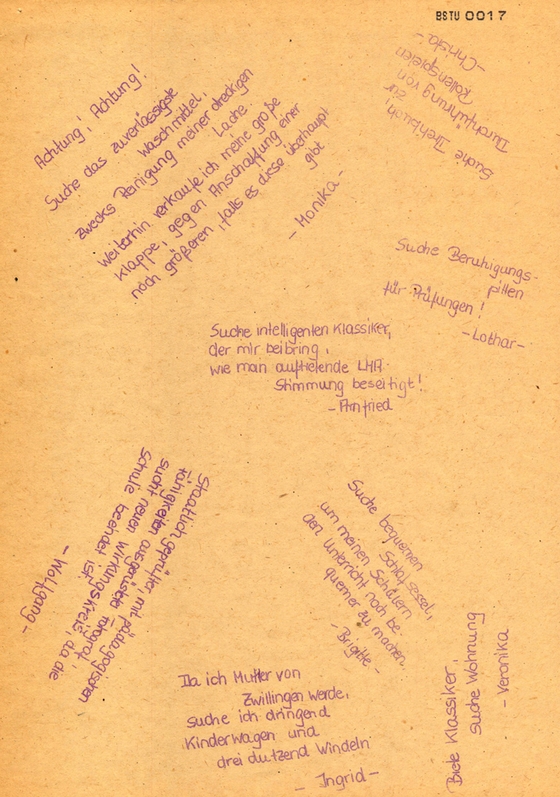 BSTU 0017
Achtung! Achtung!
Suche das zuverlässigste
Waschmittel,
zwecks Reinigung meiner dreckigen
Lache.
Weiterhin verkaufe ich meine große
Klappe, gegen Anschaffung einer
noch größeren, falls es diese überhaupt
gibt
- Monika -
Suche Drehbuch,
zur
Durchführung von
Rollenspielen
- Christa -
Suche Beruhigungs-
pillen
für Prüfungen!
- Lothar -
Suche intelligenten Klassiker,
der mir beibring,
wie man auftretende LHA-
Stimmung beseitigt!
- Anfried
Staatlich geprüfter, mit pädagogischen
Fähigkeiten ausgerüstete Fotograf
sucht neuen Wirkungskreis, da die
Schule beendet ist.
- Wolfgang -
Suche bequemen
Schlafsessel,
um meinen Schülern
den Unterricht noch be-
quemer zu machen.
- Brigitte -
Da ich Mutter von
Zwillingen werde,
suche ich dringend
Kinderwagen und
drei dutzend Windeln
- Ingrid -
Biete Klassiker,
suche Wohnung
- Veronika